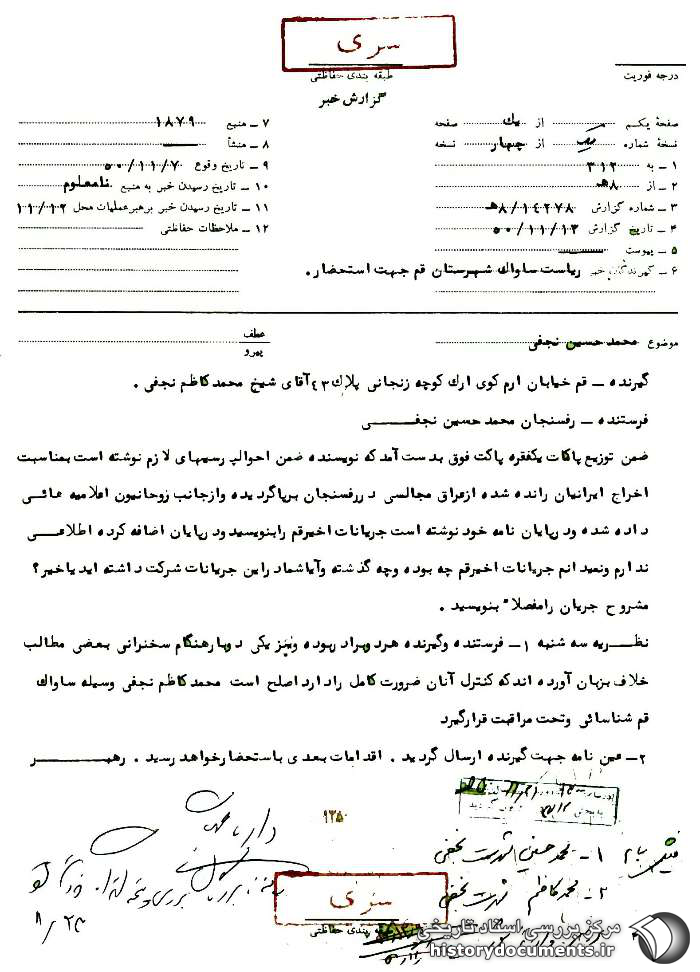 سری
طبقه بندی حفاظتی
درجه فوریت
گزارش خبر
صفحهٔ یکم از یك صفحه
نسخهٔ شماره یک از چهار نسخه
۱ ـ به ۳۱۲
۲ ـ از ۸هـ
۳ ـ شماره گزارش ۸/۱٤۲۷۸هـ
٤ ـ تاریخ گزارش ۵۰/۱۱/۱۳
۵ ـ پیوست
۶ ـ گیرندگان خبر ریاست ساواك شهرستان قم جهت استحضار .
۷ ـ منبع ۱۸۷۹
۸ ـ منشأ
۹ ـ تاریخ وقوع ۵۰/۱۱/۷
۱۰ ـ تاریخ رسیدن خبر به منبع نامعلوم
۱۱ ـ تاریخ رسیدن خبر برهبرعملیات محل ۱۱/۱۲
۱۲ ـ ملاحظات حفاظتی
موضوع محمد حسین نجفی
عطف
پیرو
گیرنده ـ قم خیابان ارم کوی ارك کوچه زنجانی پلاك ٤۳ آقای شیخ محمد کاظم نجفی .
فرستنده ـ رفسنجان محمد حسین نجفـــی
ضمن توزیع پاکات یکفقره پاکت فوق بدست آمد که نویسنده ضمن احوالپرسیهای لازم نوشته است بمناسبت
اخراج ایرانیان رانده شده ازعراق مجالسی دررفسنجان برپاگردیده وازجانب روحانیون اعلامیه هائی
داده شده ودرپایان نامه خود نوشته است جریانات اخیرقم رابنویسید ودرپایان اضافه کرده اطلاعـــی
ندارم ونمیدانم جریانات اخیرقم چه بوده وچه گذشته وآیاشماد راین جریانات شرکت داشته اید یاخیر؟
مشروح جریان رامفصلا" بنویسید .
نظـــریه سه شنبه ۱ـ فرستنده وگیرنده هردوبرادربوده ونیز یکی دوبارهنگام سخنرانی بعضی مطالب
خلاف بزبان آورده اند که کنترل آنان ضرورت کامل رادارد اصلح است محمد کاظم نجفی وسیله ساواك
قم شناسائی وتحت مراقبت قرارگیرد
۲ـ عین نامه جهت گیرنده ارسال گردید . اقدامات بعدی باستحضارخواهد رسید . رهبـــر
۹۲۵۰
۱ ـ محمد حسین شهرت نجفی
۲ ـ محمد کاظم شهرت نجفی
۸/۲۳
سری
طبقه بندی حفاظتی
مرکز بررسی اسناد تاریخی
historydocuments.ir